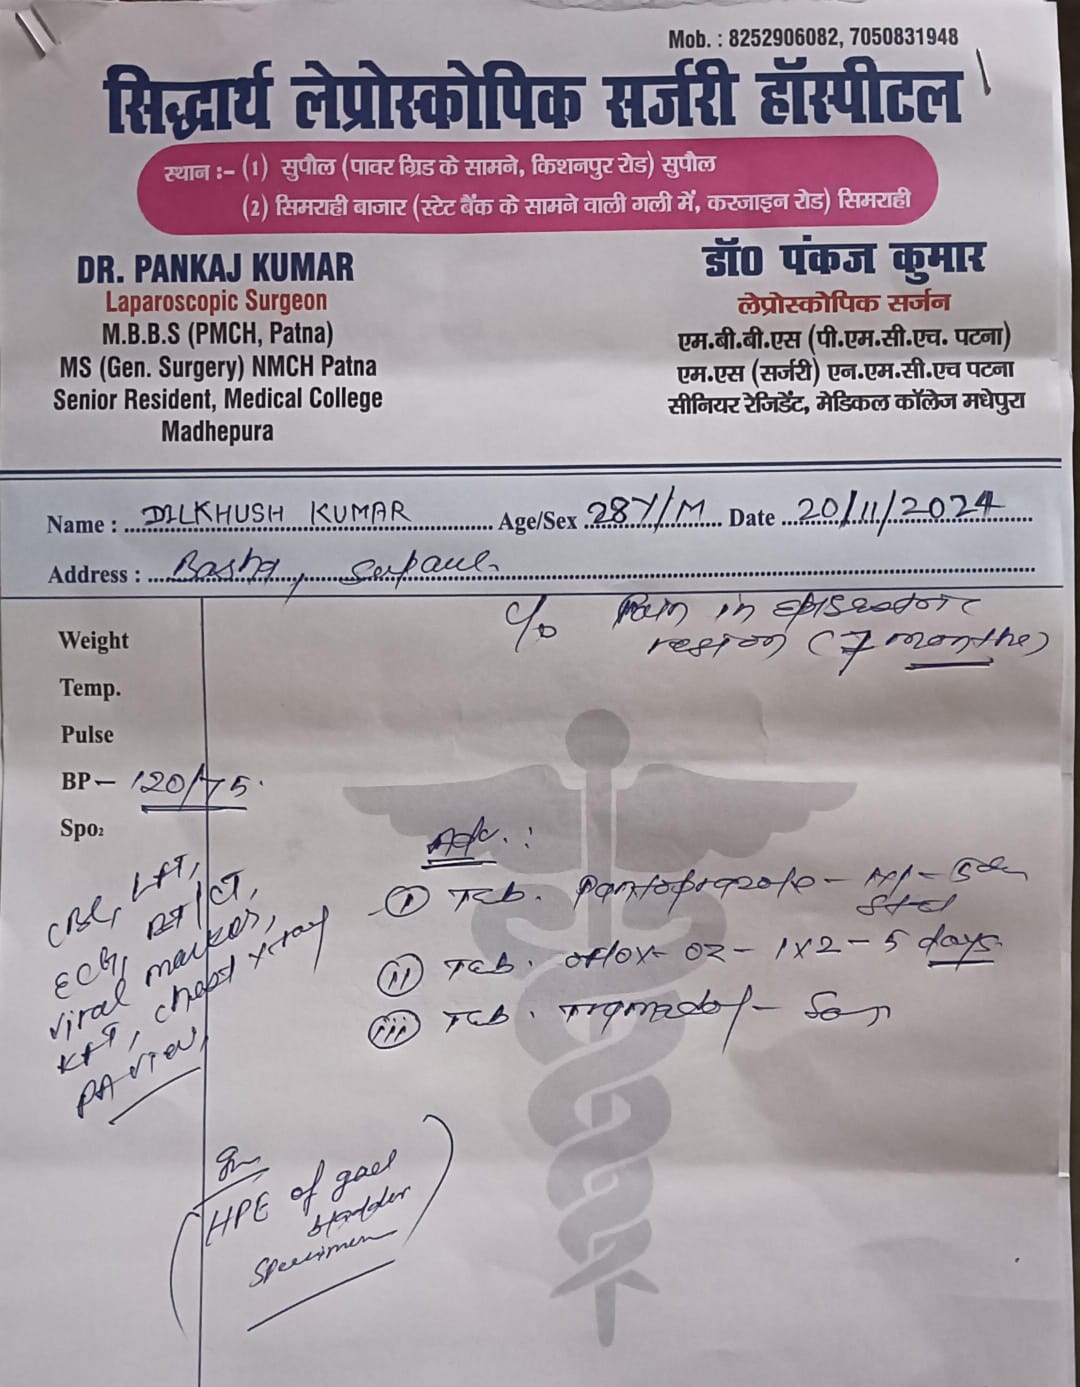 Mob. : 8252906082, 7050831948
सिद्धार्थ लेप्रोस्कोपिक सर्जरी हॉस्पीटल
स्थान :- (1) सुपौल (पावर ग्रिड के सामने, किशनपुर रोड) सुपौल
(2) सिमराही बाजार (स्टेट बैंक के सामने वाली गली में, करजाइन रोड) सिमराही
DR. PANKAJ KUMAR
Laparoscopic Surgeon
M.B.B.S (PMCH, Patna)
MS (Gen. Surgery) NMCH Patna
Senior Resident, Medical College
Madhepura
डॉ0 पंकज कुमार
लेप्रोस्कोपिक सर्जन
एम.बी.बी.एस (पी.एम.सी.एच. पटना)
एम.एस (सर्जरी) एन.एम.सी.एच पटना
सीनियर रेजिडेंट, मेडिकल कॉलेज मधेपुरा
Name : DILKHUSH KUMAR Age/Sex 28Y/M Date 20/11/2024
Address : Supaul
c/o Pain in epigastric
region (7 months)
Weight
Temp.
Pulse
BP - 120/75
Spo2
CBC, LFT,
ECG, BT/CT,
viral marker,
KFT, chest x-ray
PA view,
Adv. :
(i) Tab. Pantoprazole -
(ii) Tab. Oflox-OZ - 1x2 - 5 days
(iii) Tab. Tramadol -
HPE of gall
bladder
specimen